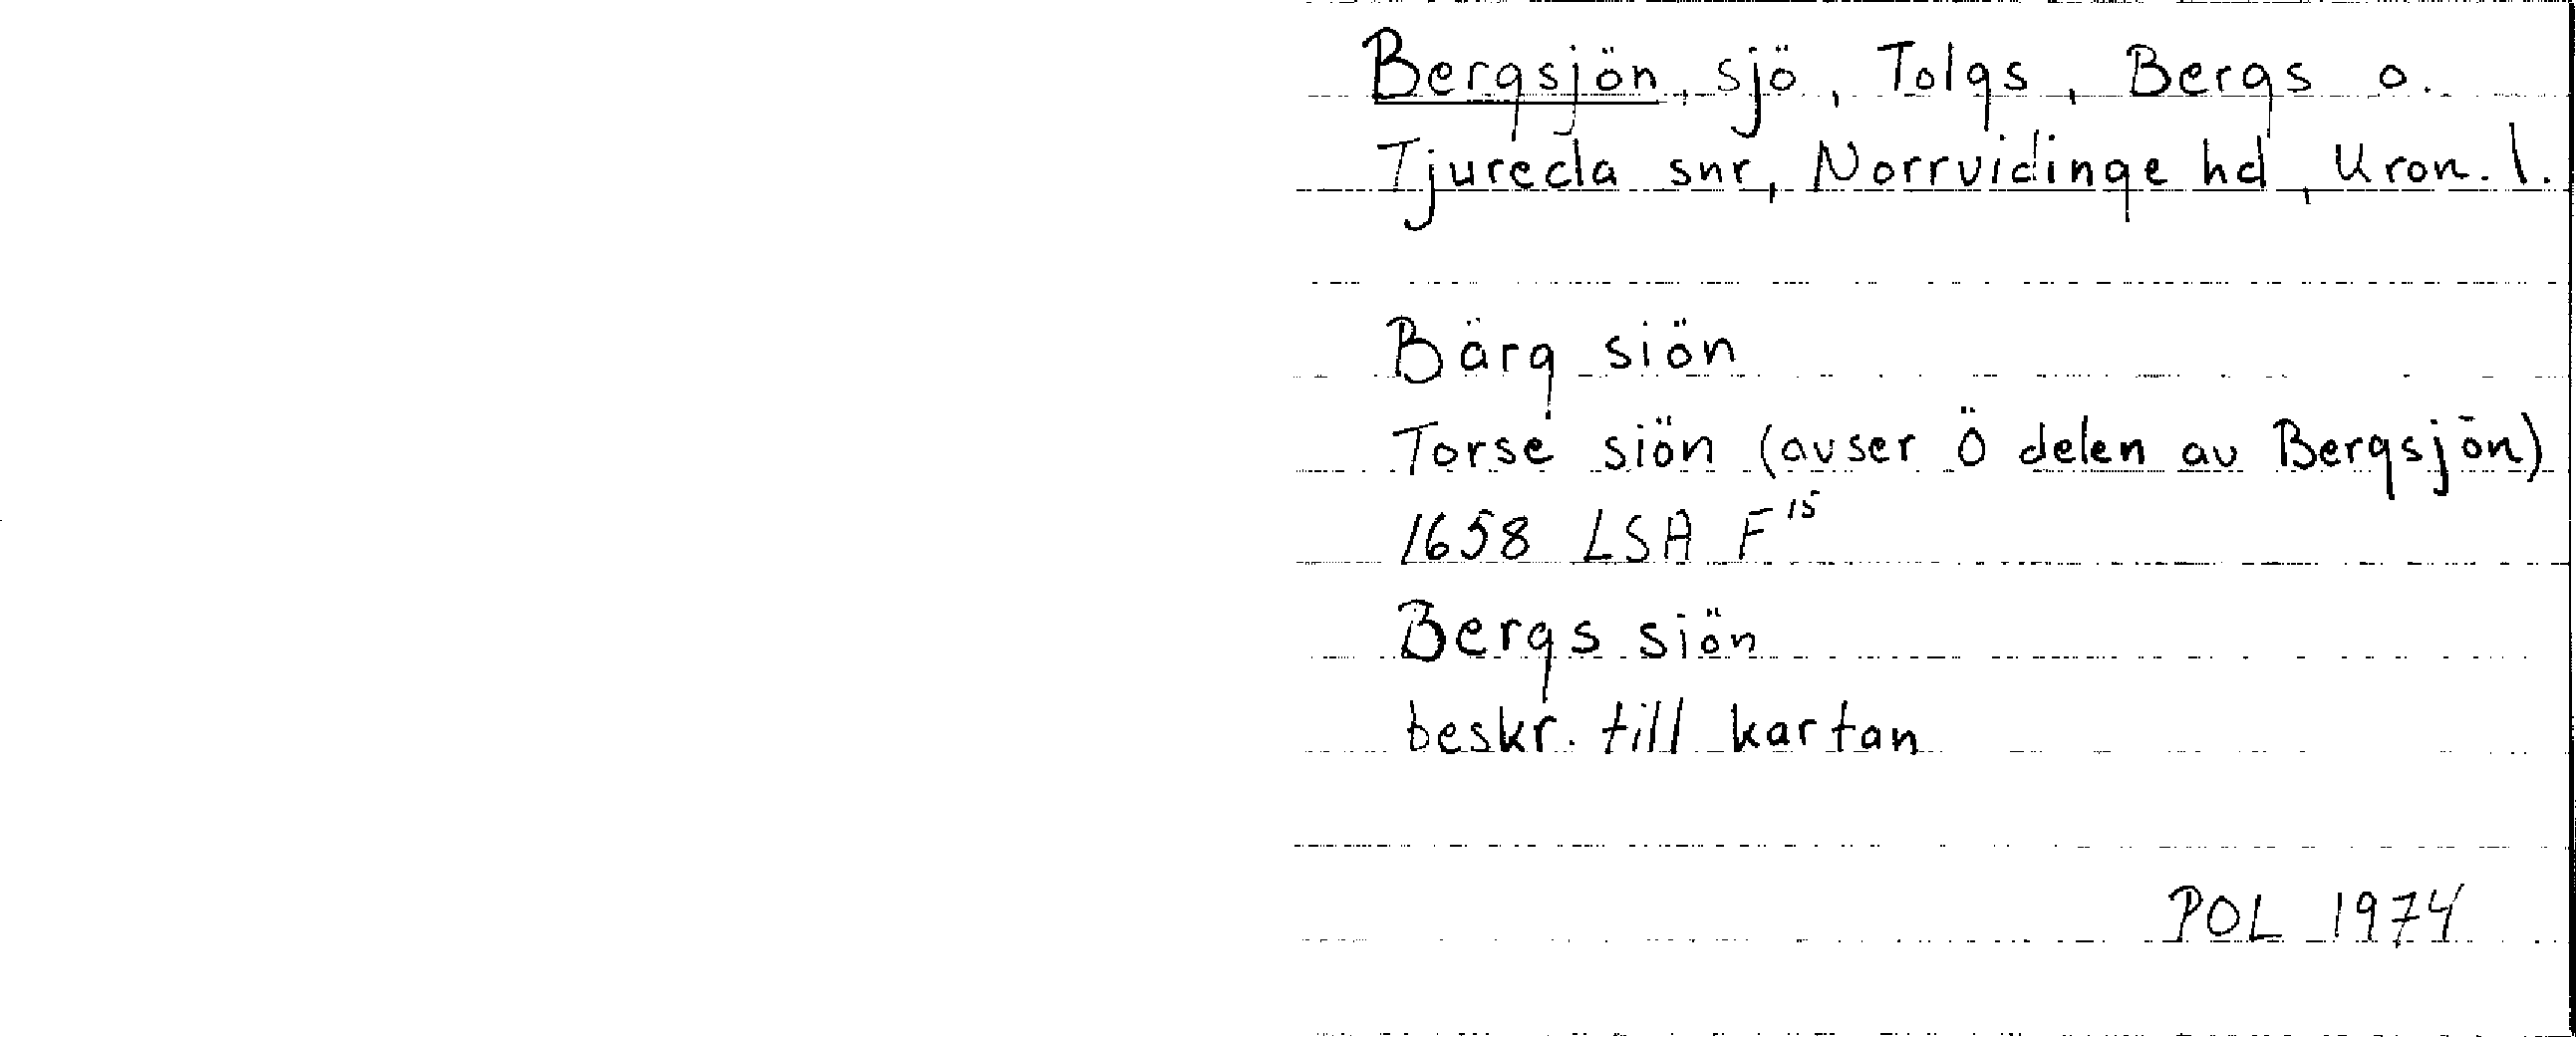 Bergsjön, sjö, Tolgs, Bergs o.
Tjureda snr, Norrvidinge hd, Kron. l.
Bärg siön
Torse siön (avser Ö delen av Bergsjön)
1658 LSA F15
Bergs siön
beskr. till kartan
POL 1974